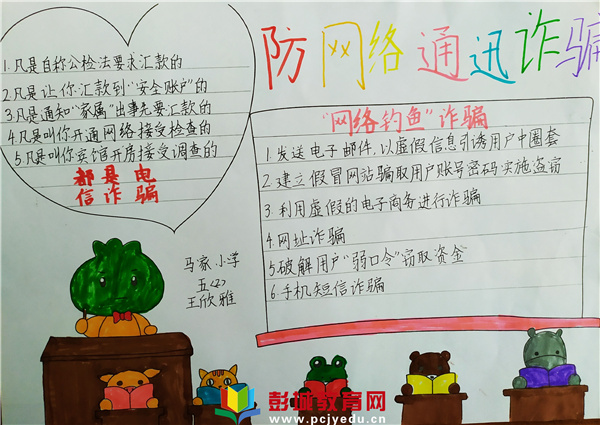 防网络通迅诈骗
1.凡是自称公检法要求汇款的
2.凡是让你汇款到“安全账户”的
3.凡是通知“家属”出事先要汇款的
4.凡是叫你开通网络接受检查的
5.凡是叫你宾馆开房接受调查的
都是电
信诈骗
“网络钓鱼”诈骗
1.发送电子邮件,以虚假信息引诱用户中圈套
2.建立假冒网站骗取用户账号密码实施盗窃
3.利用虚假的电子商务进行诈骗
4.网址诈骗
5.破解用户“弱口令”窃取资金
6.手机短信诈骗
马家小学
五(2)
王欣雅
彭城教育网
www.pcjyedu.cn